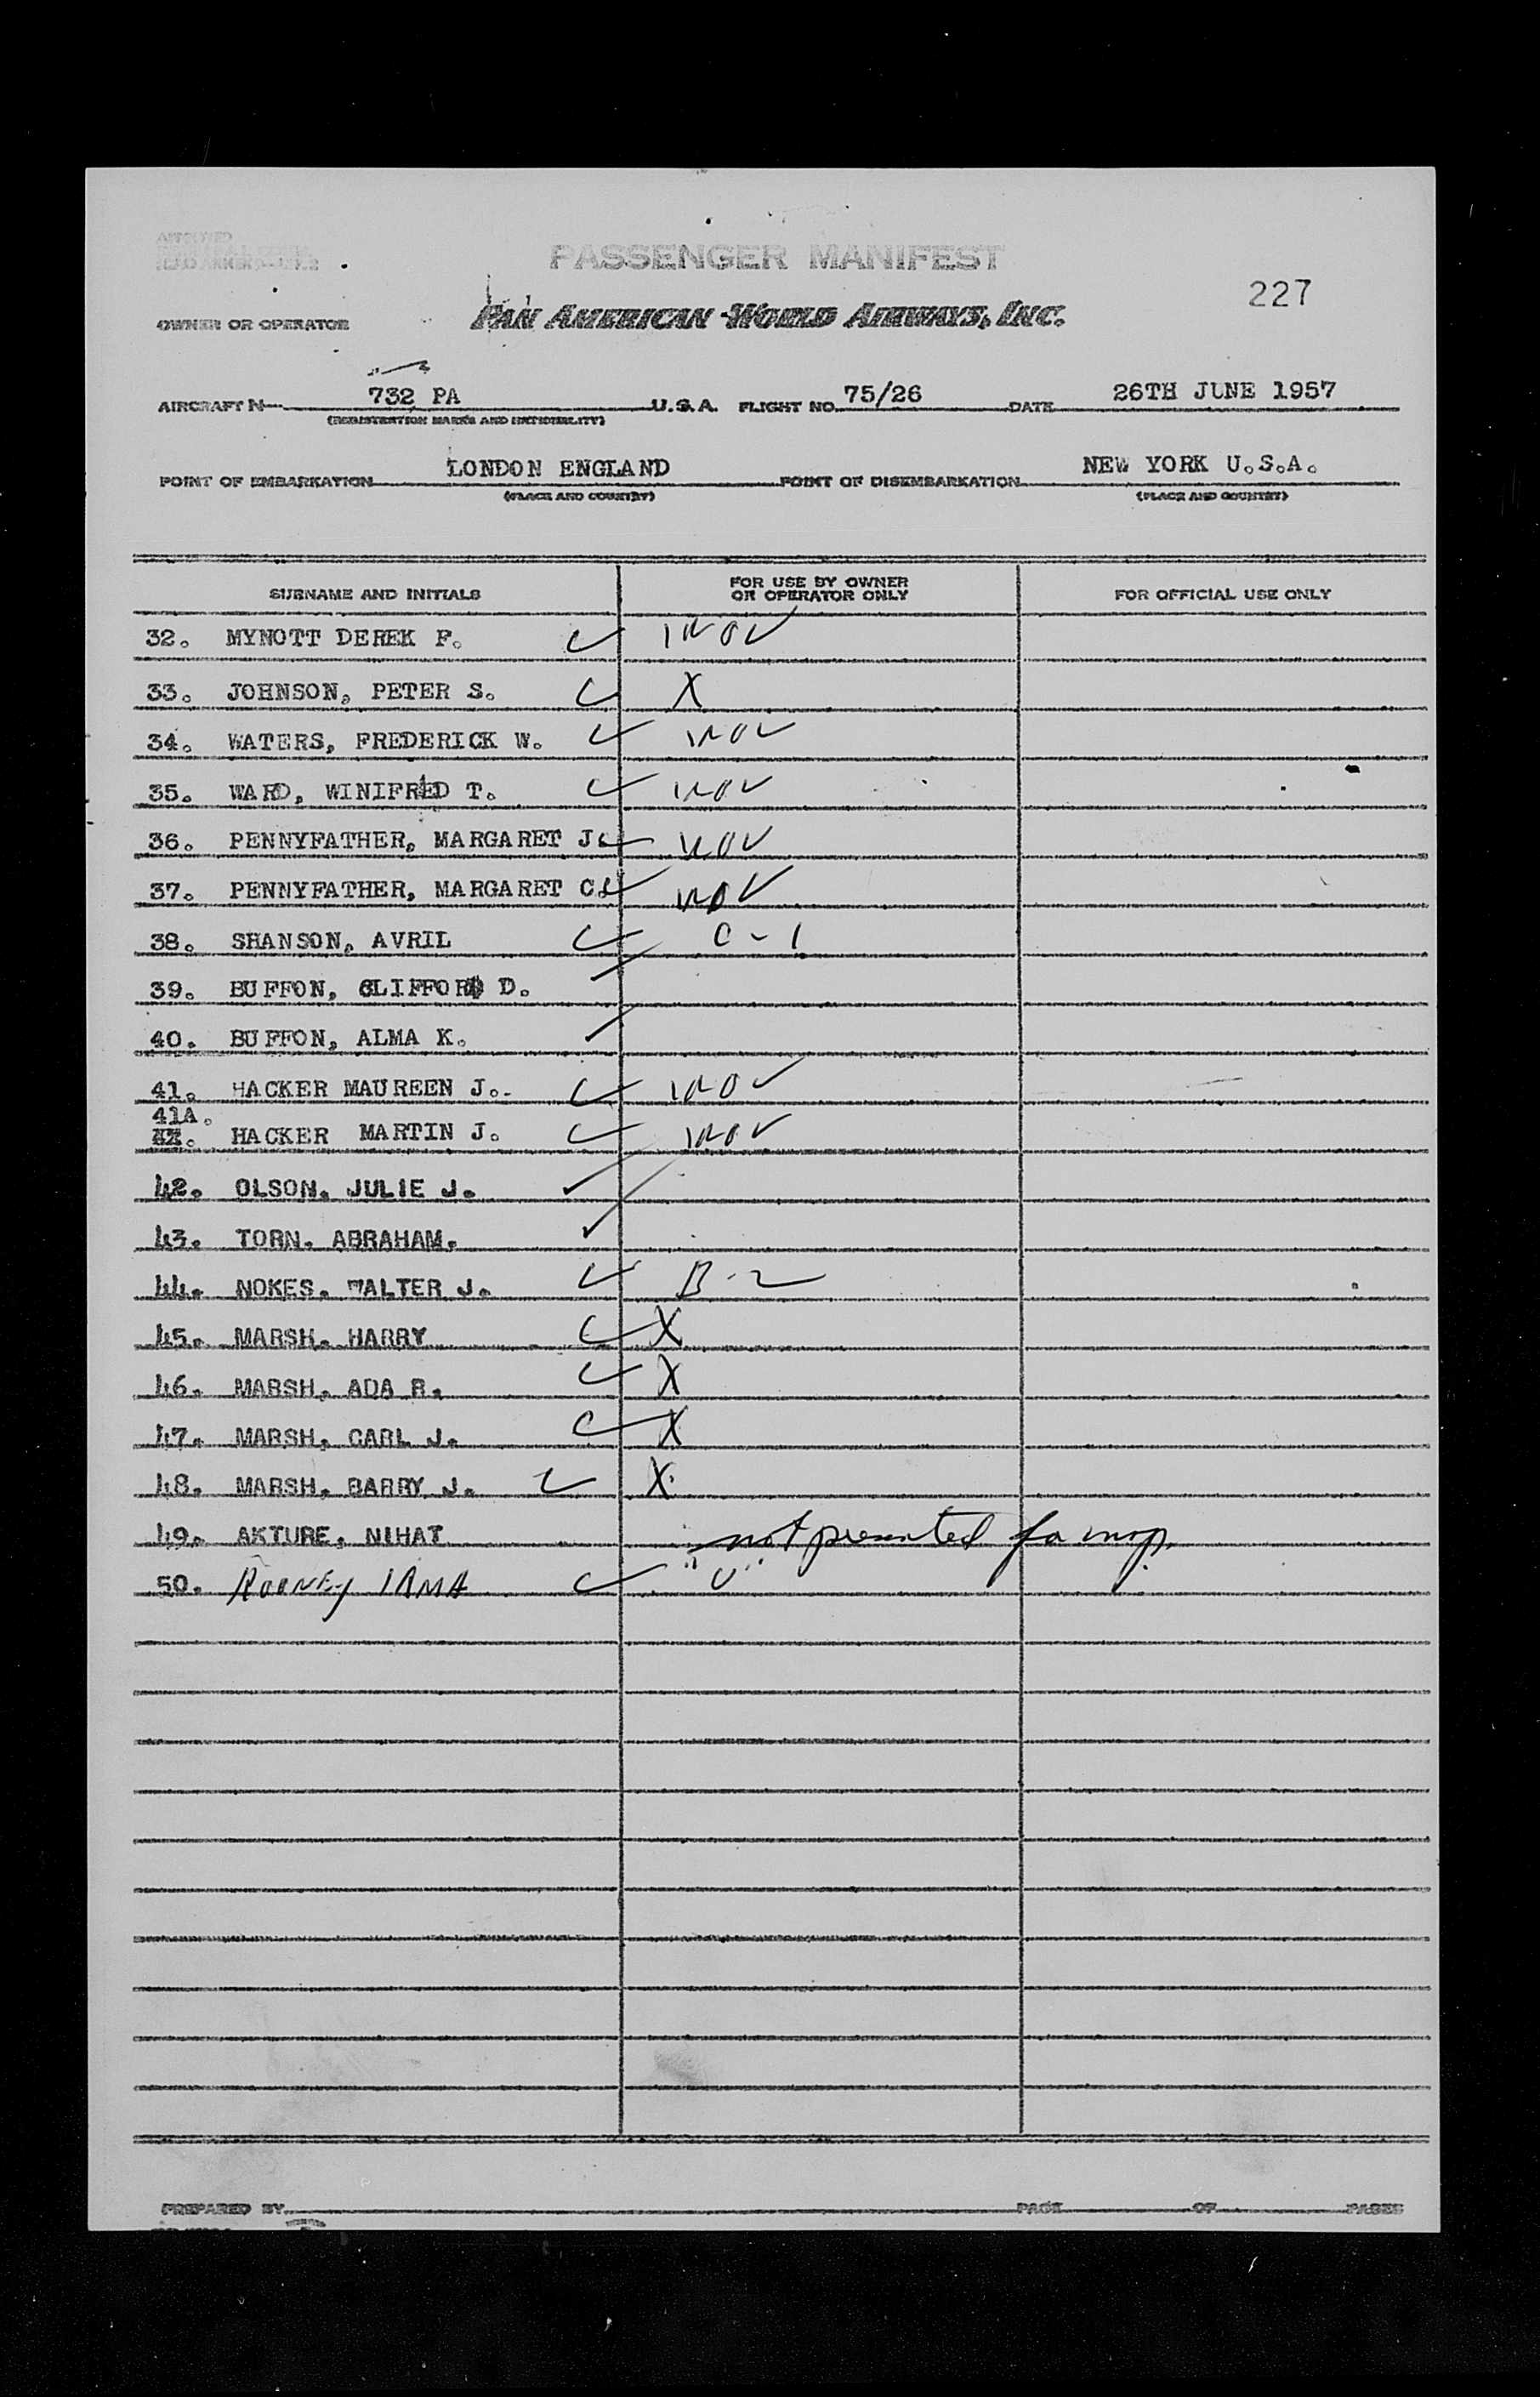 PASSENGER MANIFEST
227
OWNER OR OPERATOR PAN AMERICAN WORLD AIRWAYS, INC.
AIRCRAFT N 732 PA U.S.A. FLIGHT NO. 75/26 DATE 26TH JUNE 1957
(REGISTRATION MARKS AND NATIONALITY)
POINT OF EMBARKATION LONDON ENGLAND POINT OF DISEMBARKATION NEW YORK U.S.A.
(PLACE AND COUNTRY) (PLACE AND COUNTRY)
SURNAME AND INITIALS FOR USE BY OWNER OR OPERATOR ONLY FOR OFFICIAL USE ONLY
32. MYNOTT DEREK F.
33. JOHNSON, PETER S. X
34. WATERS, FREDERICK W.
35. WARD, WINIFRED T.
36. PENNYFATHER, MARGARET J.
37. PENNYFATHER, MARGARET C.
38. SHANSON, AVRIL C-1
39. BUFFON, CLIFFORD D.
40. BUFFON, ALMA K.
41. HACKER MAUREEN J.
41A. HACKER MARTIN J.
42. OLSON. JULIE J.
43. TORN. ABRAHAM.
44. NOKES. WALTER J. B-2
45. MARSH. HARRY X
46. MARSH. ADA R. X
47. MARSH. CARL J. X
48. MARSH. BARRY J. X
49. AKTURE, NIHAT not presented for insp.
50. ROONEY IRMA
PREPARED BY PAGE OF PAGES